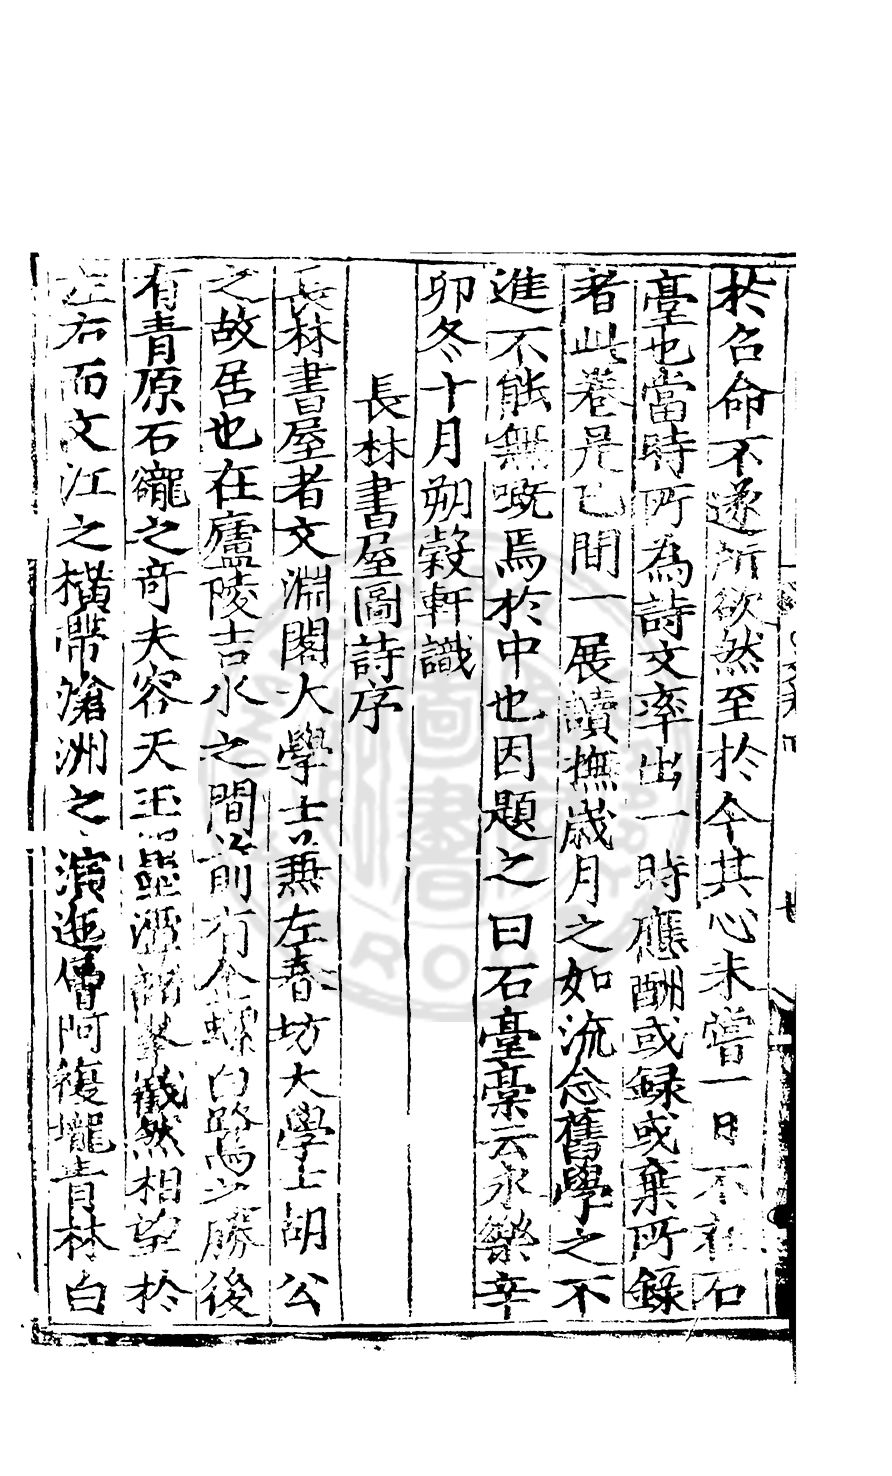 於名命不遂所欲然至於今其心未嘗一日不在石
臺也當時所為詩文率出一時應酬或録或棄所錄
者此卷是已間一展讀撫歲月之如流念舊學之不
進不能無嘅焉於中也因題之曰石臺稾云永樂辛
卯冬十月朔榖軒識
長林書屋圖詩序
長林書屋者文淵閣大學士兼左春坊大學士胡公
之故居也在廬陵吉水之間前有金螺白鷺之勝後
有青原石龍之奇夫容天玉諸峯巀然相望於
左右而文江之橫帶滄洲之濵迤僧阿複壠青林白